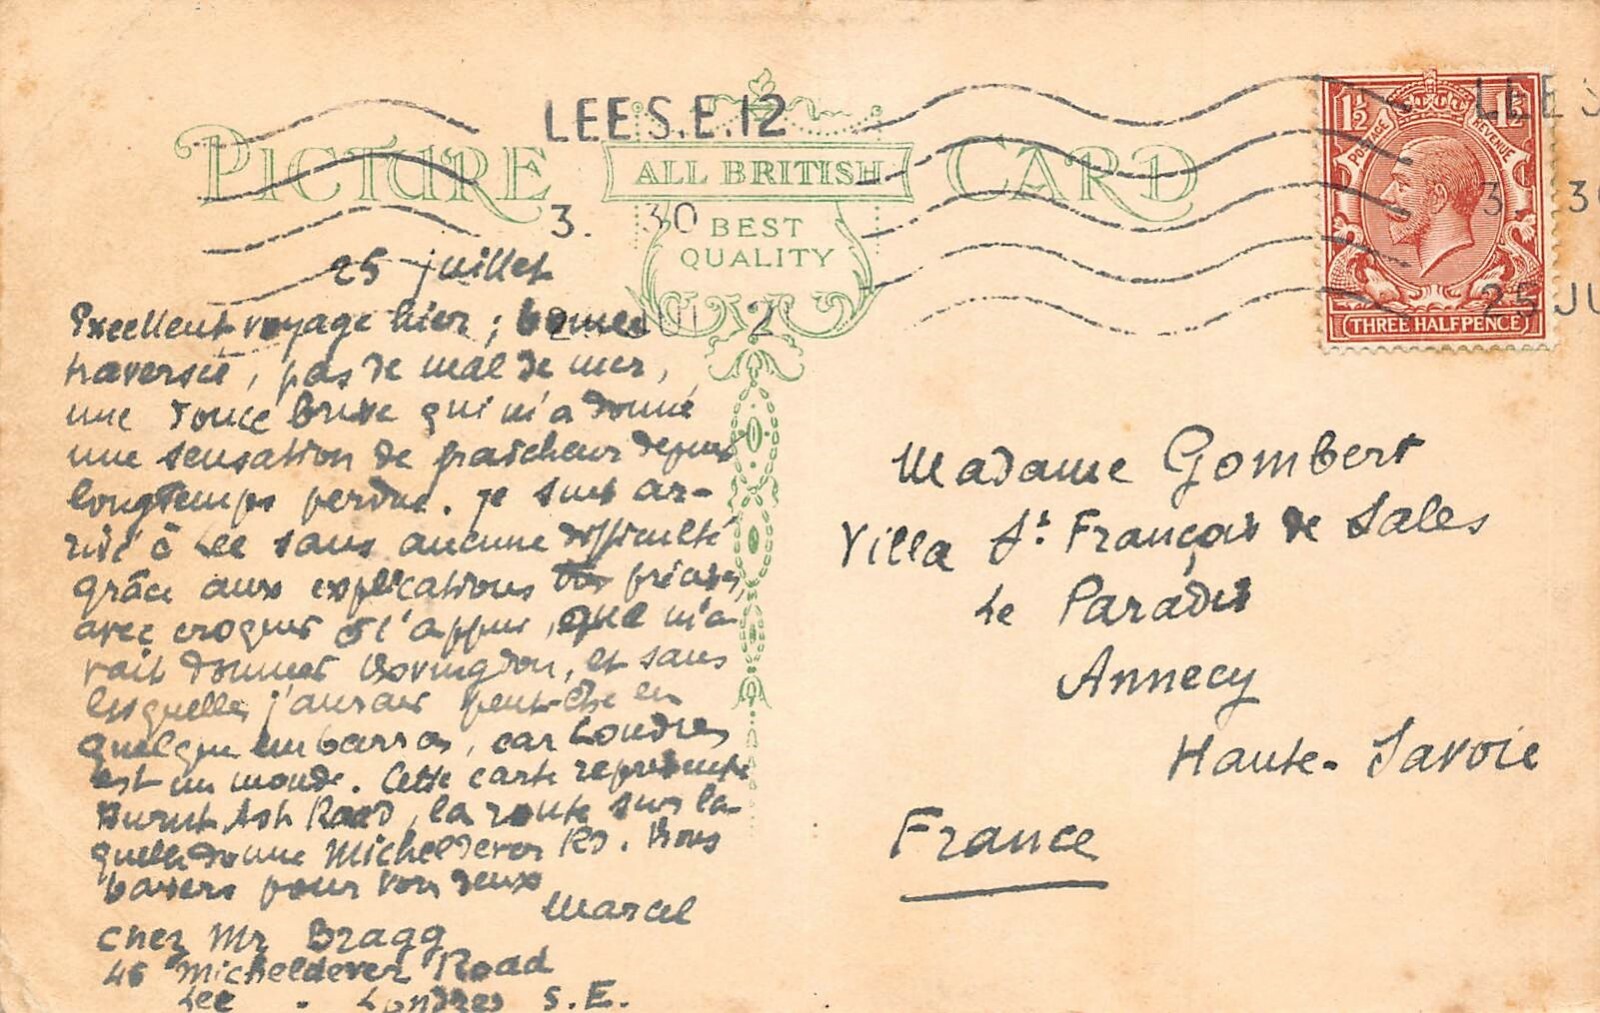 PICTURE CARD
ALL BRITISH
BEST
QUALITY
LEE S.E.12
3. 30
25 JUL 2
LEE S
3. 30
25 JU
1½ 1½
POSTAGE REVENUE
THREE HALFPENCE
25 juillet
Excellent voyage hier ; bonne
traversée, pas de mal de mer,
une douce brise qui m'a donné
une sensation de fraîcheur depuis
longtemps perdue. Je suis ar-
rivé à Lee sans aucune difficulté
grâce aux explications précises,
avec croquis à l'appui, que m'a-
vait données, et sans
lesquelles j'aurais peut-être en
quelque embarras, car Londres
est un monde. Cette carte représente
Burnt Ash Road, la route sur la-
quelle donne Micheldever Rd. Bons
baisers pour vous deux
Marcel
chez Mr Bragg
46 Micheldever Road
Lee - Londres S.E.
Madame Gombert
Villa St François de Sales
Le Paradis
Annecy
Haute-Savoie
France